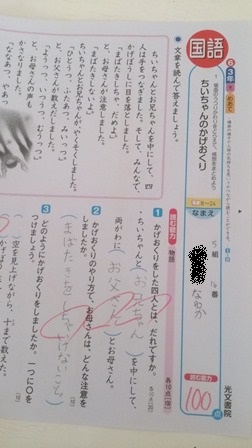 国語
6 3年
めあて
1 場面のうつりかわりをとらえて、感想をまとめよう
ちいちゃんのかげおくり
なまえ
5組
番
光文書院
読む能力
100点
● 文章を読んで答えましょう。
ちいちゃんとお兄ちゃんを中にして、四
人は手をつなぎました。そして、みんなで、
かげぼうしに目を落としました。
「まばたきしちゃ、だめよ。」
と、お母さんが注意しました。
「まばたきしないよ。」
ちいちゃんとお兄ちゃんが、やくそくしました。
「ひとうつ、ふたあつ、みいっつ。」
と、お父さんが数えだしました。
「ようっつ、いつうつ、むうっつ。」
と、お母さんの声も
かさなりました。
「ななあつ、やあっ
読む能力
物語
1 かげおくりをした四人とは、だれですか。
各10点
ちいちゃんと(お兄ちゃん)を中にして、
両がわに(お父さん)とお母さん。
2 かげおくりのやり方で、お母さんは、どんな注意を
しましたか。
(まばたきをしてはいけないこと。)
3 どのようにかげおくりをしましたか。一つに○を
つけましょう。
( )空を見上げながら、十まで数えた。